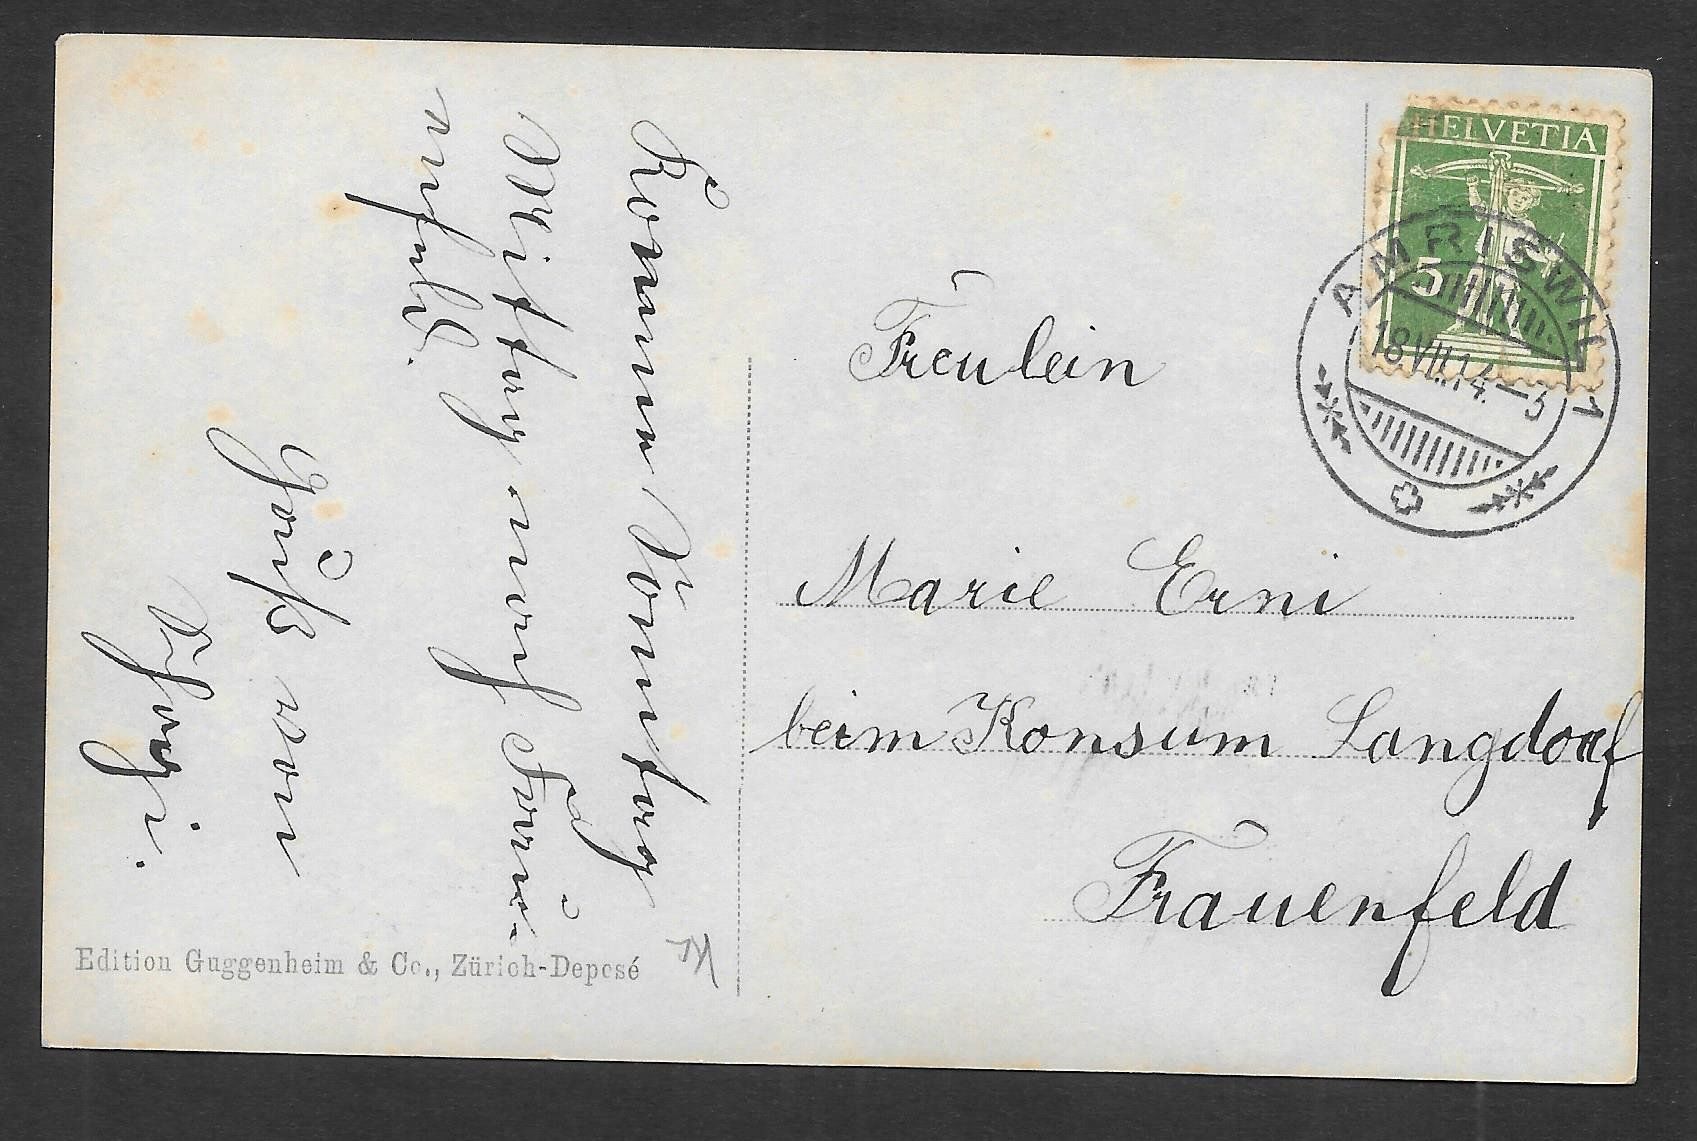 Komme Sonntag
Mittag nach Fraue-
nfeld.
Gruß von
Schagi.
Edition Guggenheim & Co., Zürich-Deposé
HELVETIA
5
AMRISWIL 1
18.VII.14.–3
Freulein
Marie Erni
beim Konsum Langdorf
Frauenfeld